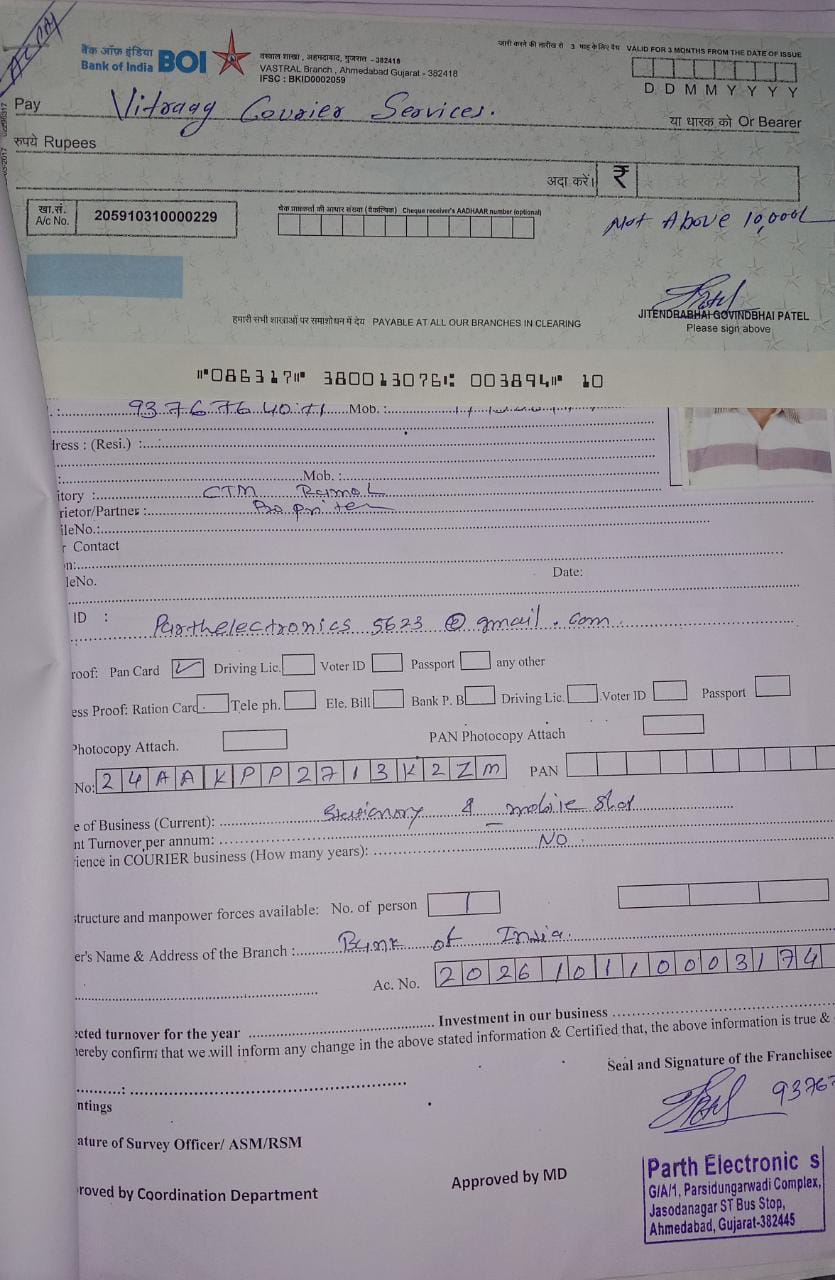 A/c Pay
बैंक ऑफ़ इंडिया
Bank of India BOI
वस्त्राल शाखा, अहमदाबाद, गुजरात - 382418
VASTRAL Branch, Ahmedabad Gujarat - 382418
IFSC : BKID0002059
जारी करने की तारीख से 3 माह के लिए वैध VALID FOR 3 MONTHS FROM THE DATE OF ISSUE
D D M M Y Y Y Y
Pay Vitraag Courier Services.
या धारक को Or Bearer
रुपये Rupees
अदा करें। ₹
खा.सं.
A/c No. 205910310000229
चेक प्राप्तकर्ता की आधार संख्या (वैकल्पिक) Cheque receiver's AADHAAR number (optional)
Not Above 10,000/-
हमारी सभी शाखाओं पर समाशोधन में देय PAYABLE AT ALL OUR BRANCHES IN CLEARING
JITENDRABHAI GOVINDBHAI PATEL
Please sign above
⑈086317⑈ 380013076⑆ 003894⑈ 10
.: 9376764071 Mob. :
dress : (Resi.) :
Mob. :
itory : CTM Ramol
rietor/Partner : Propriter
ileNo.:
r Contact
n:
leNo. Date:
ID : Parthelectronics5623@gmail.com
roof: Pan Card ✓ Driving Lic. Voter ID Passport any other
ess Proof: Ration Card Tele ph. Ele. Bill Bank P. B Driving Lic. Voter ID Passport
Photocopy Attach. PAN Photocopy Attach
No: 24AAKPP2713K2ZM PAN
e of Business (Current): Stationory & mobile Shop
nt Turnover per annum:
rience in COURIER business (How many years): NO
structure and manpower forces available: No. of person 1
er's Name & Address of the Branch : Bank of India.
Ac. No. 202610110003174
cted turnover for the year Investment in our business
hereby confirm that we will inform any change in the above stated information & Certified that, the above information is true &
Seal and Signature of the Franchisee
9376
ntings
ature of Survey Officer/ ASM/RSM
roved by Coordination Department Approved by MD
Parth Electronic s
G/A/1, Parsidungarwadi Complex,
Jasodanagar ST Bus Stop,
Ahmedabad, Gujarat-382445